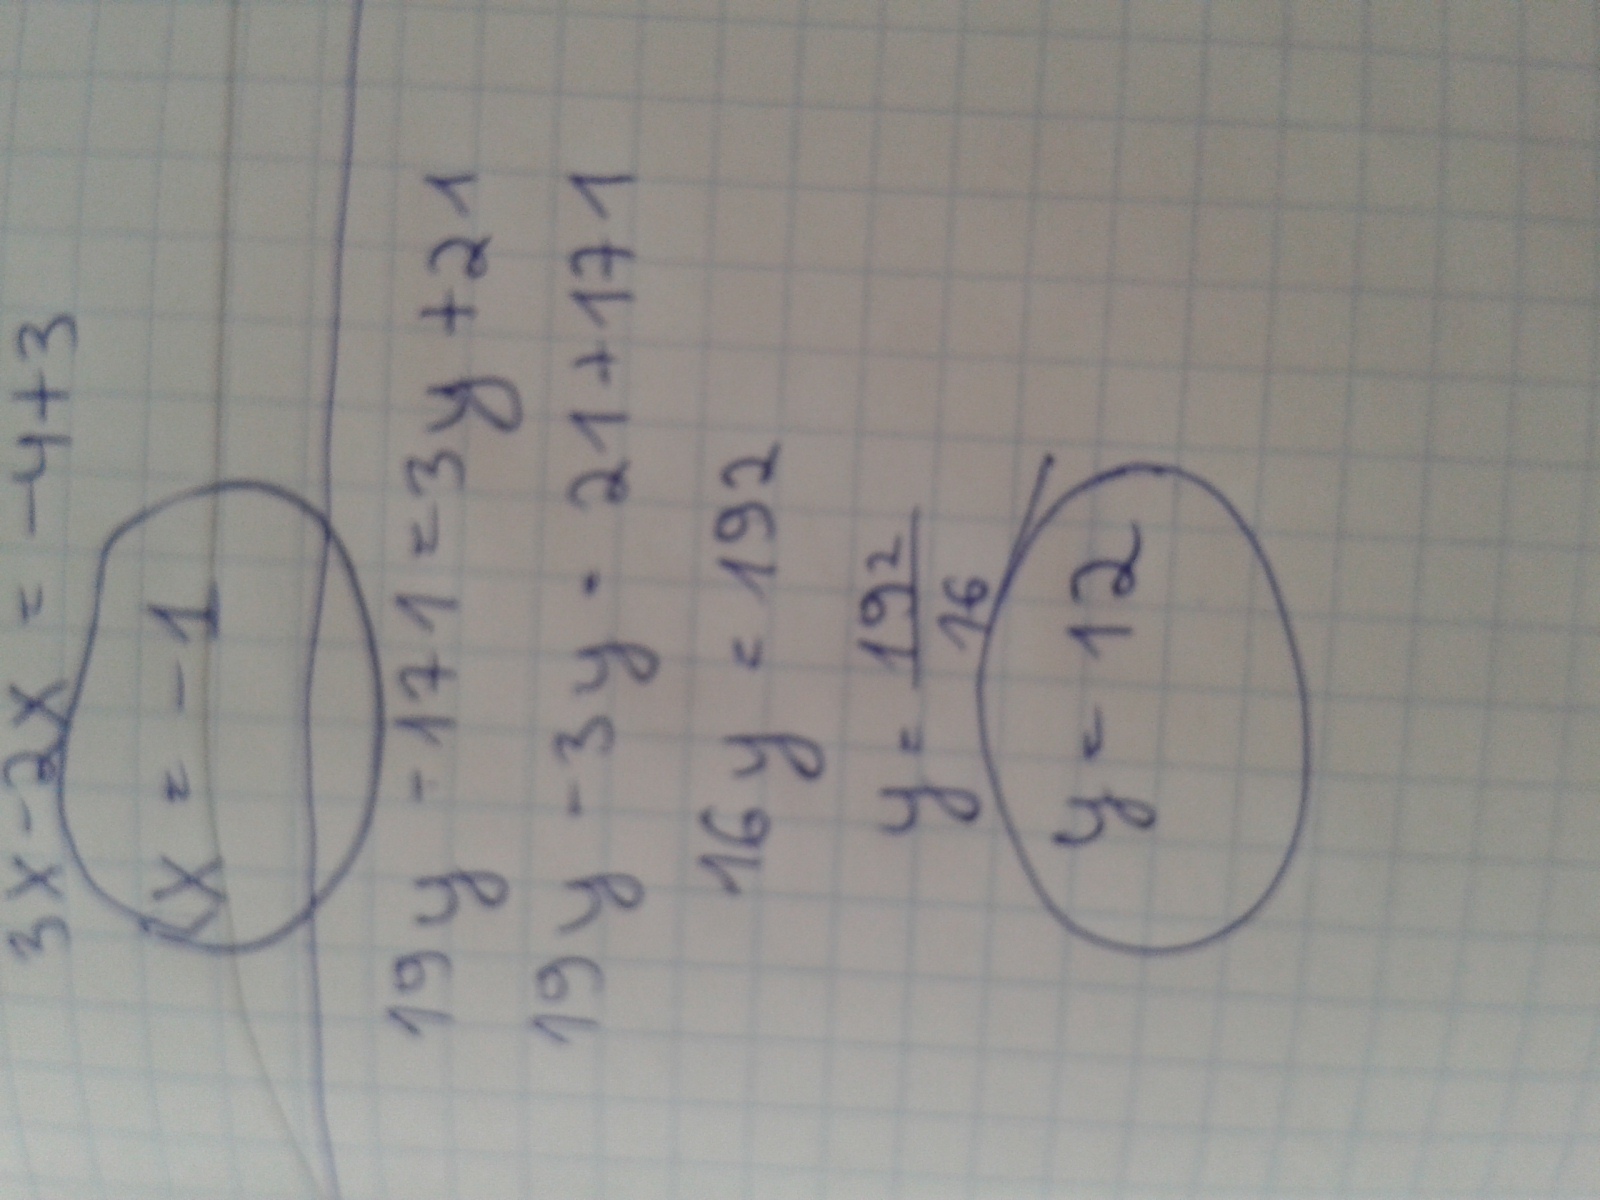 3x-2x = -4+3
x = -1
19y -171=3y+21
19y -3y = 21+171
16y = 192
y = 192/16
y = 12